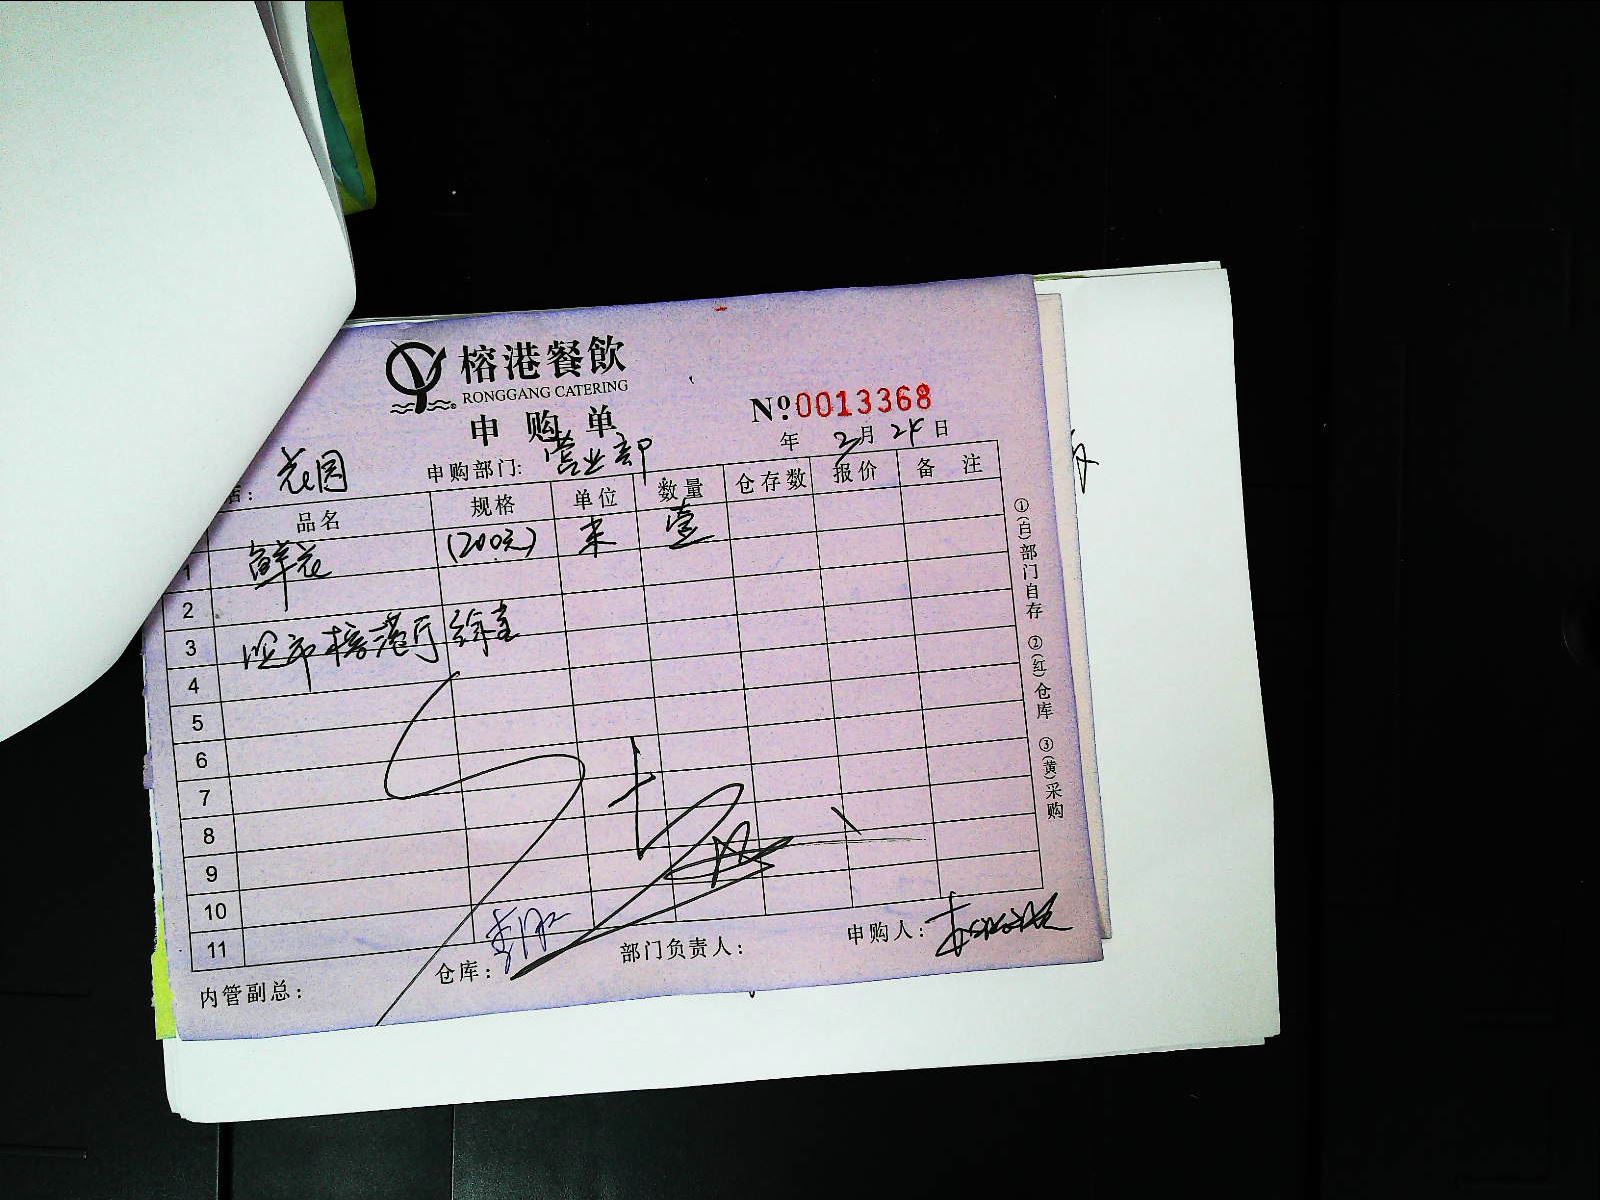 榕港餐飲
RONGGANG CATERING
申购单
Nº0013368
年 3月 24日
店: 花园 申购部门: 营业部
品名 规格 单位 数量 仓存数 报价 备注
1 鲜花 (200元) 束 壹
2
3 榕港厅
4
5
6
7
8
9
10
11
内管副总: 仓库: 部门负责人: 申购人:
①(白)部门自存 ②(红)仓库 ③(黄)采购